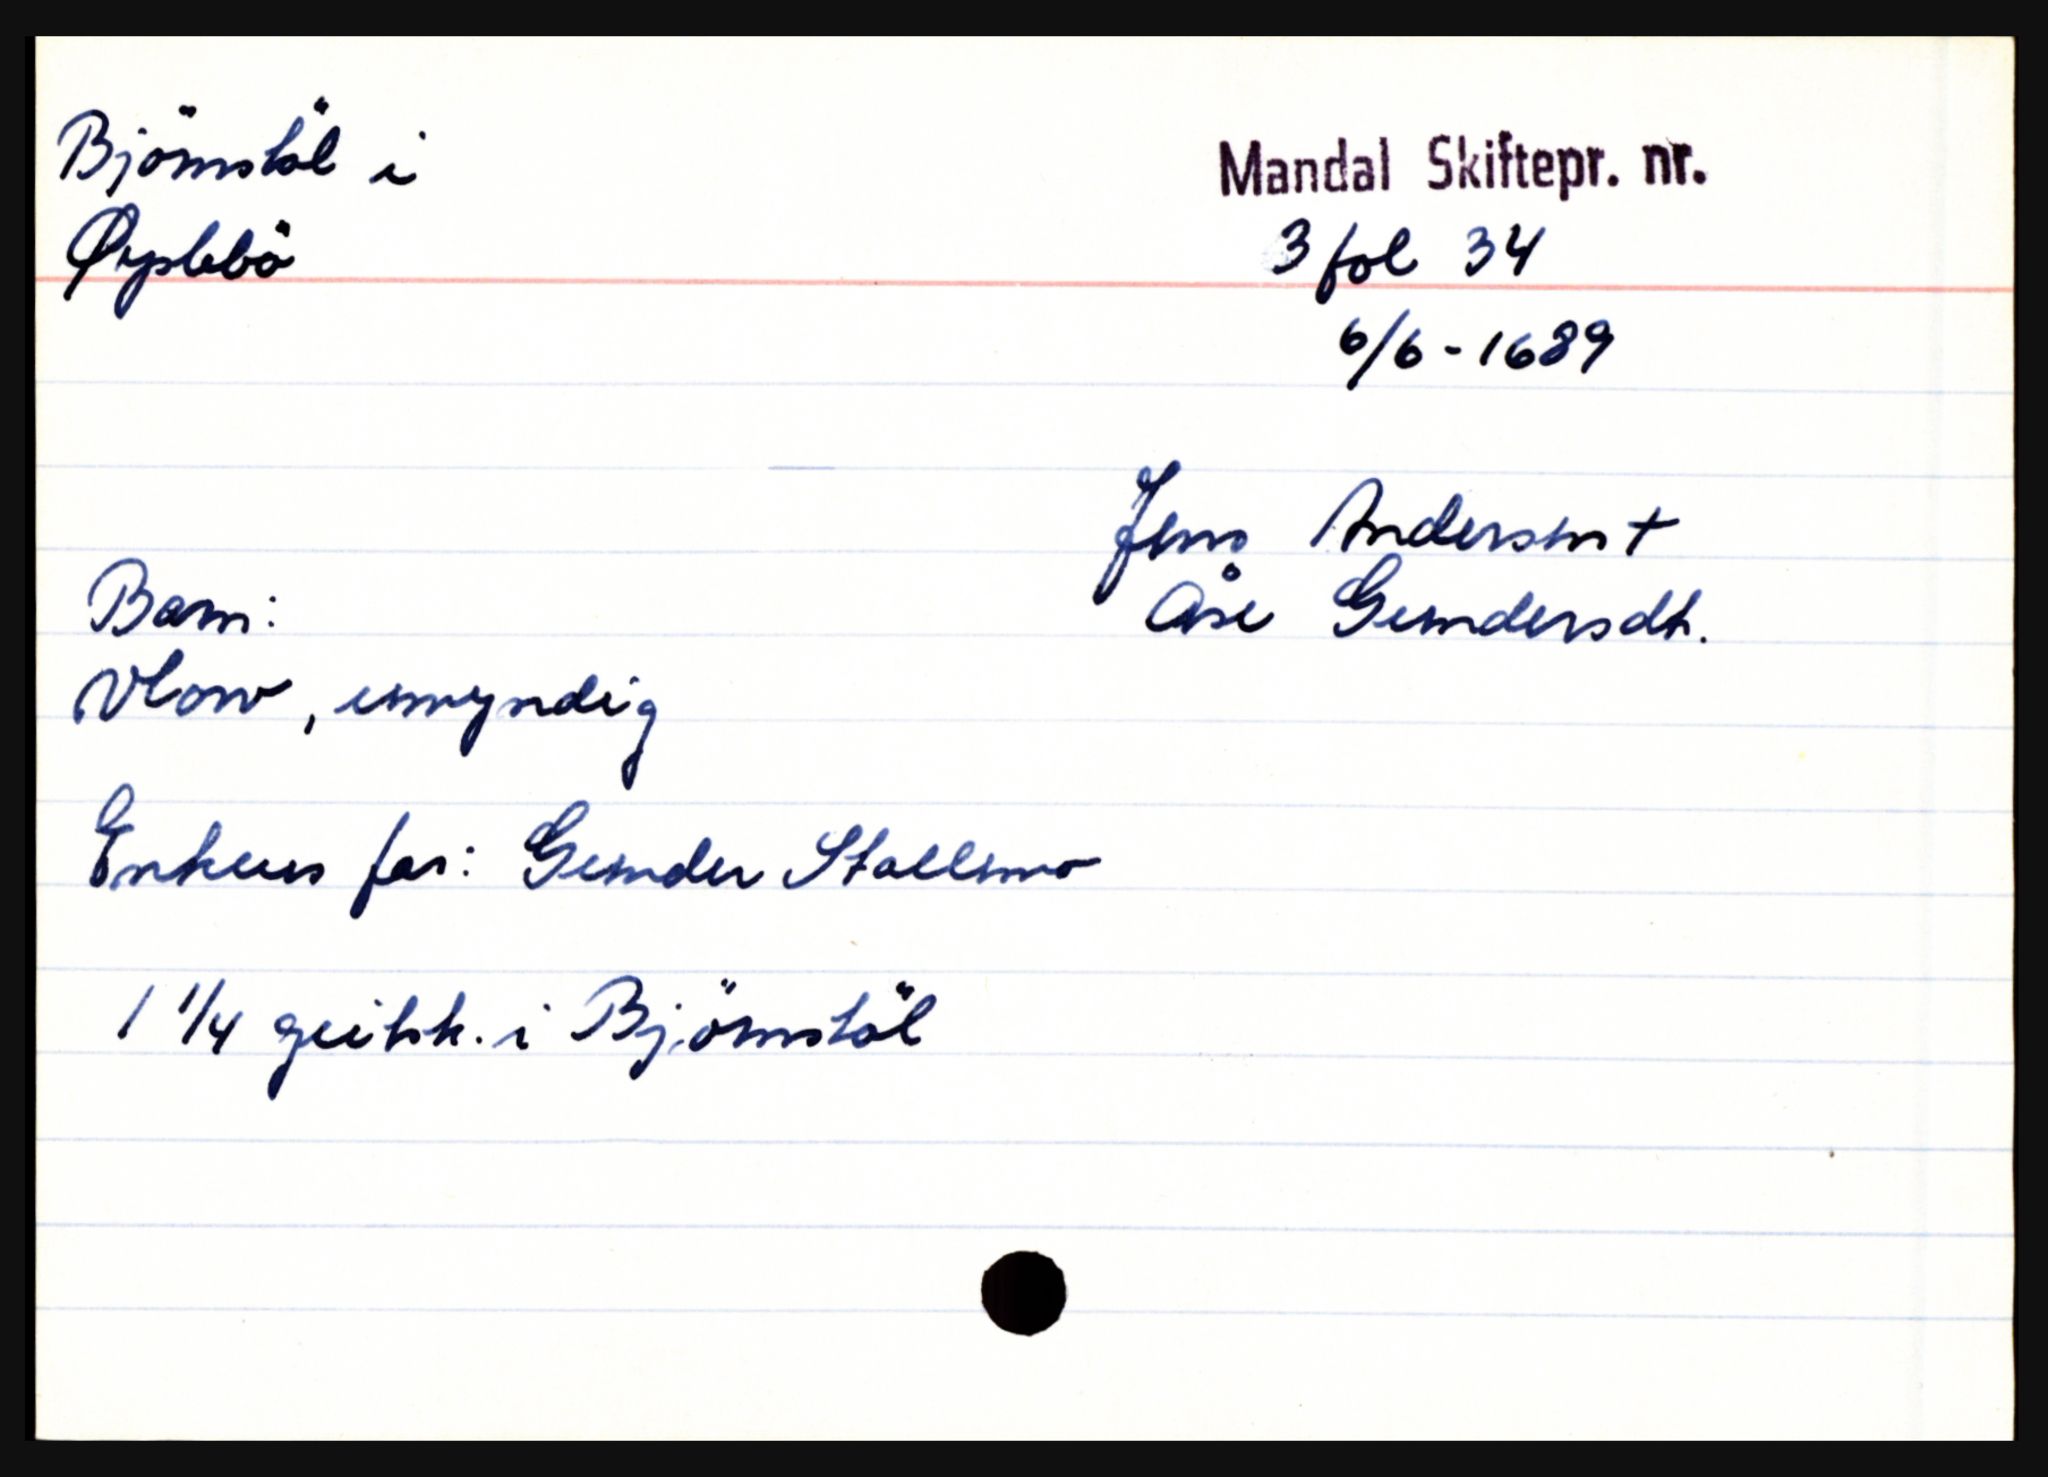 Björnstöl i
Øyslebö
Mandal Skiftepr. nr.
3 fol 34
6/6 - 1689
Jens Andersen +
Åse Gundersdt.
Barn:
, umyndig
Enkens far: Gunder Stallemo
1 1/4 geitsk. i Björnstöl